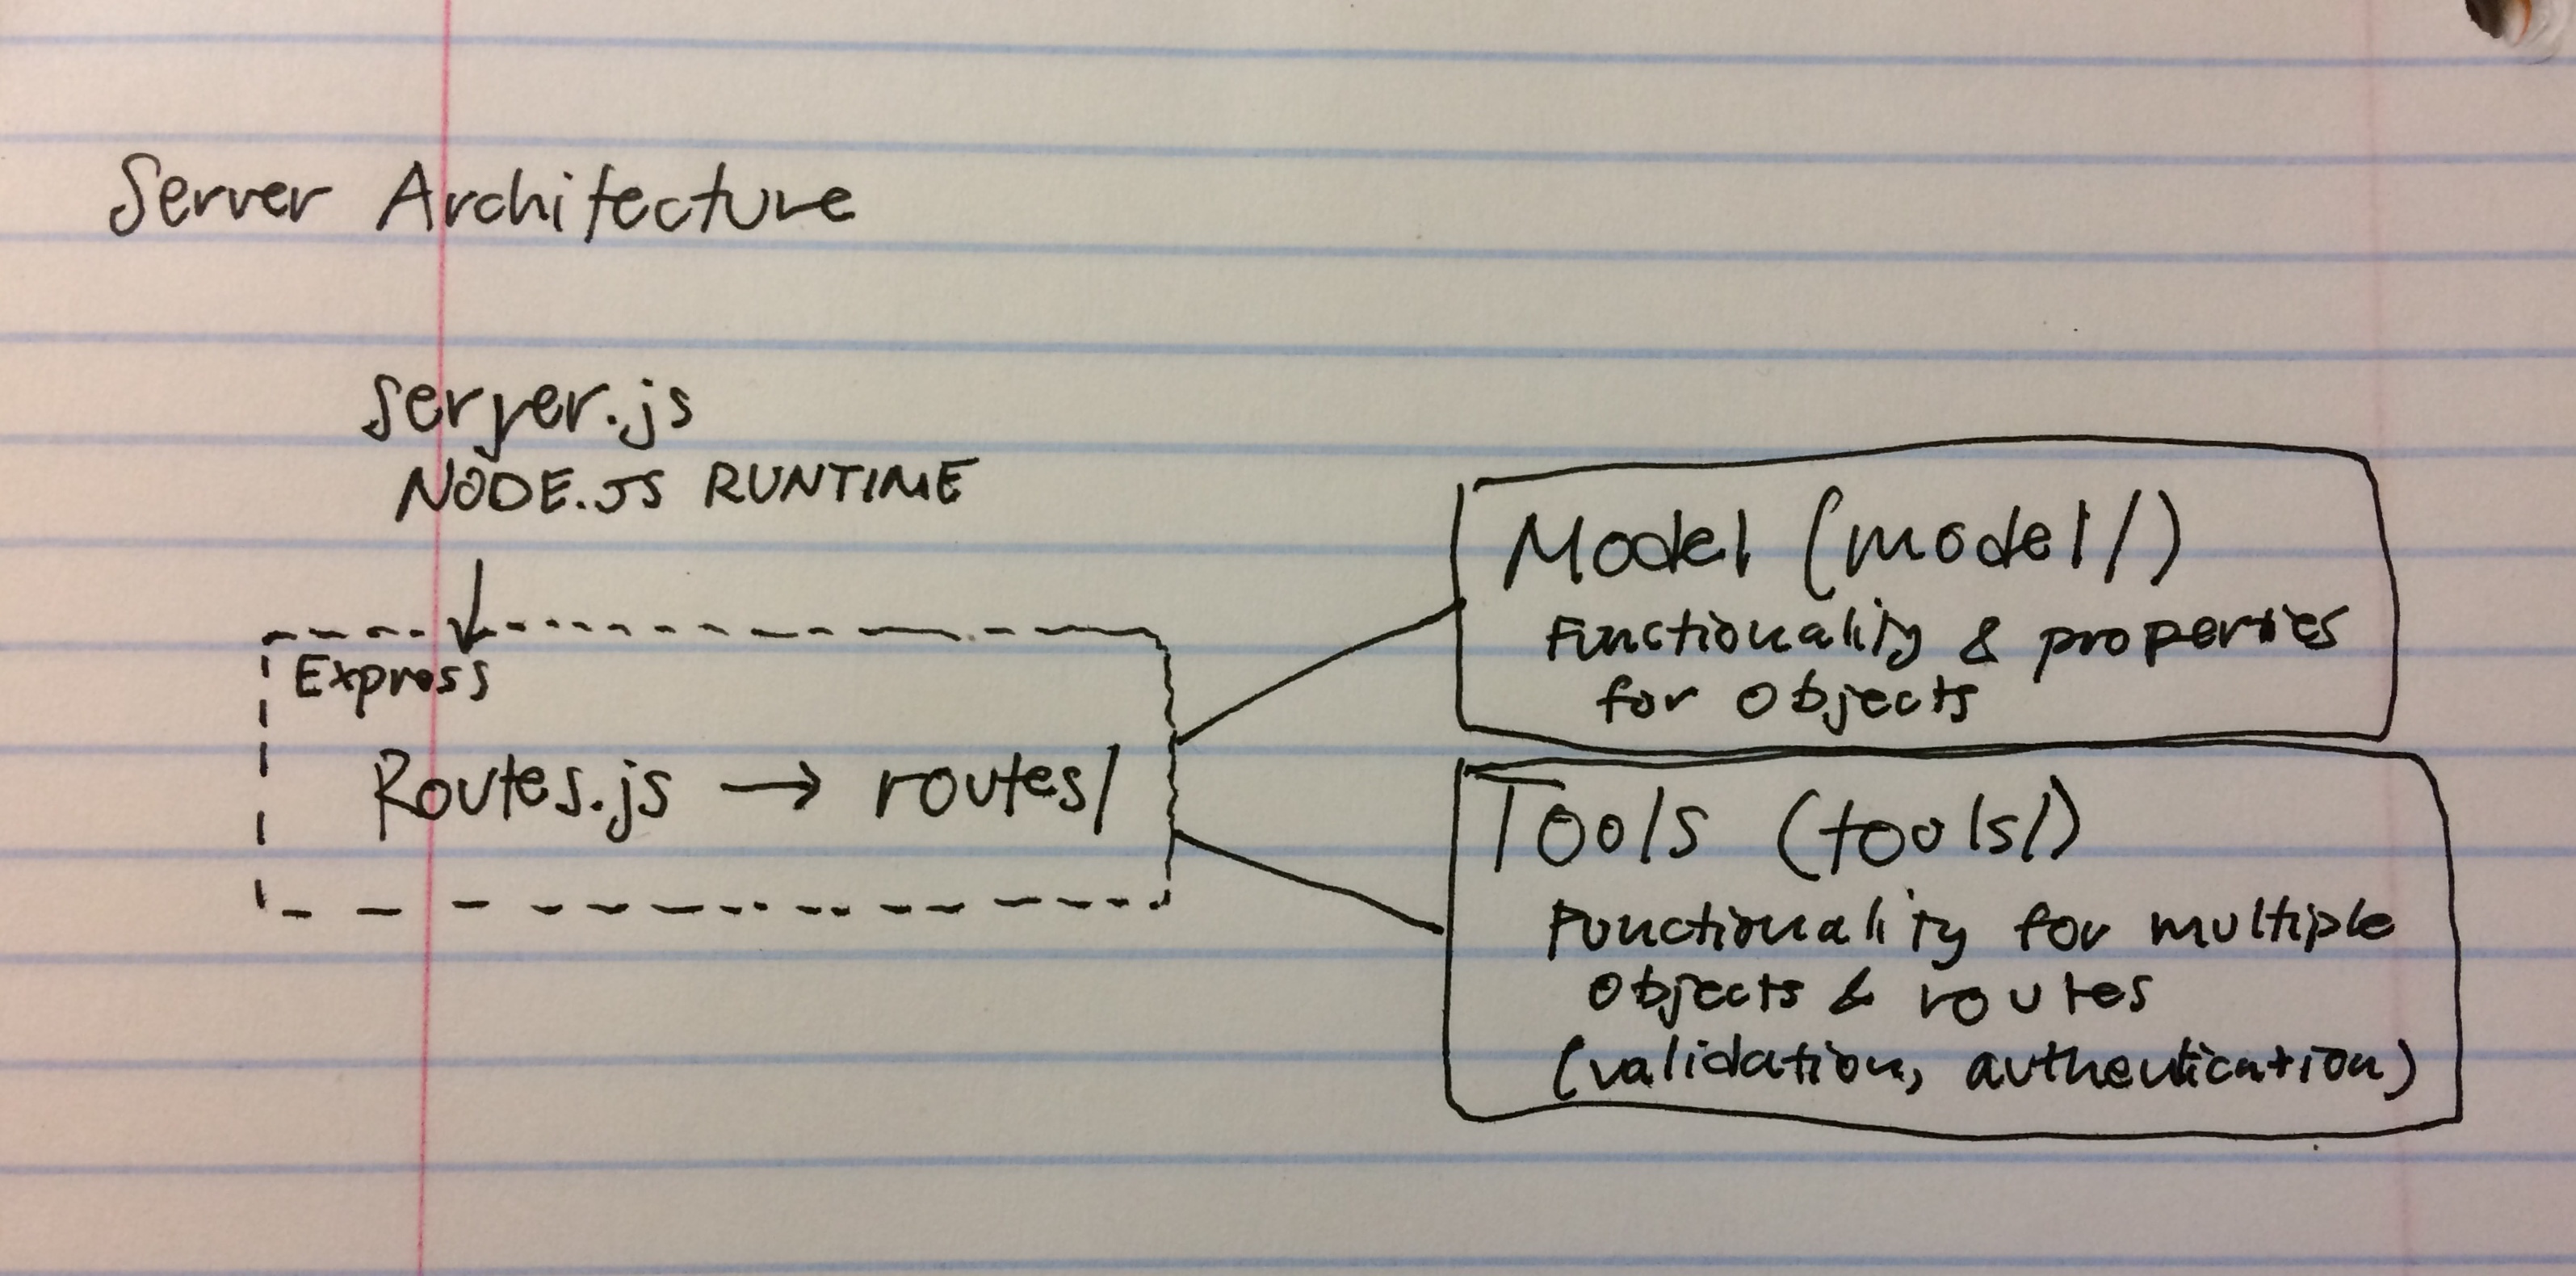 Server Architecture
server.js
NODE.JS RUNTIME
Express
Routes.js → routes/
Model (model/)
Functionality & properties
for objects
Tools (tools/)
Functionality for multiple
objects & routes
(validation, authentication)